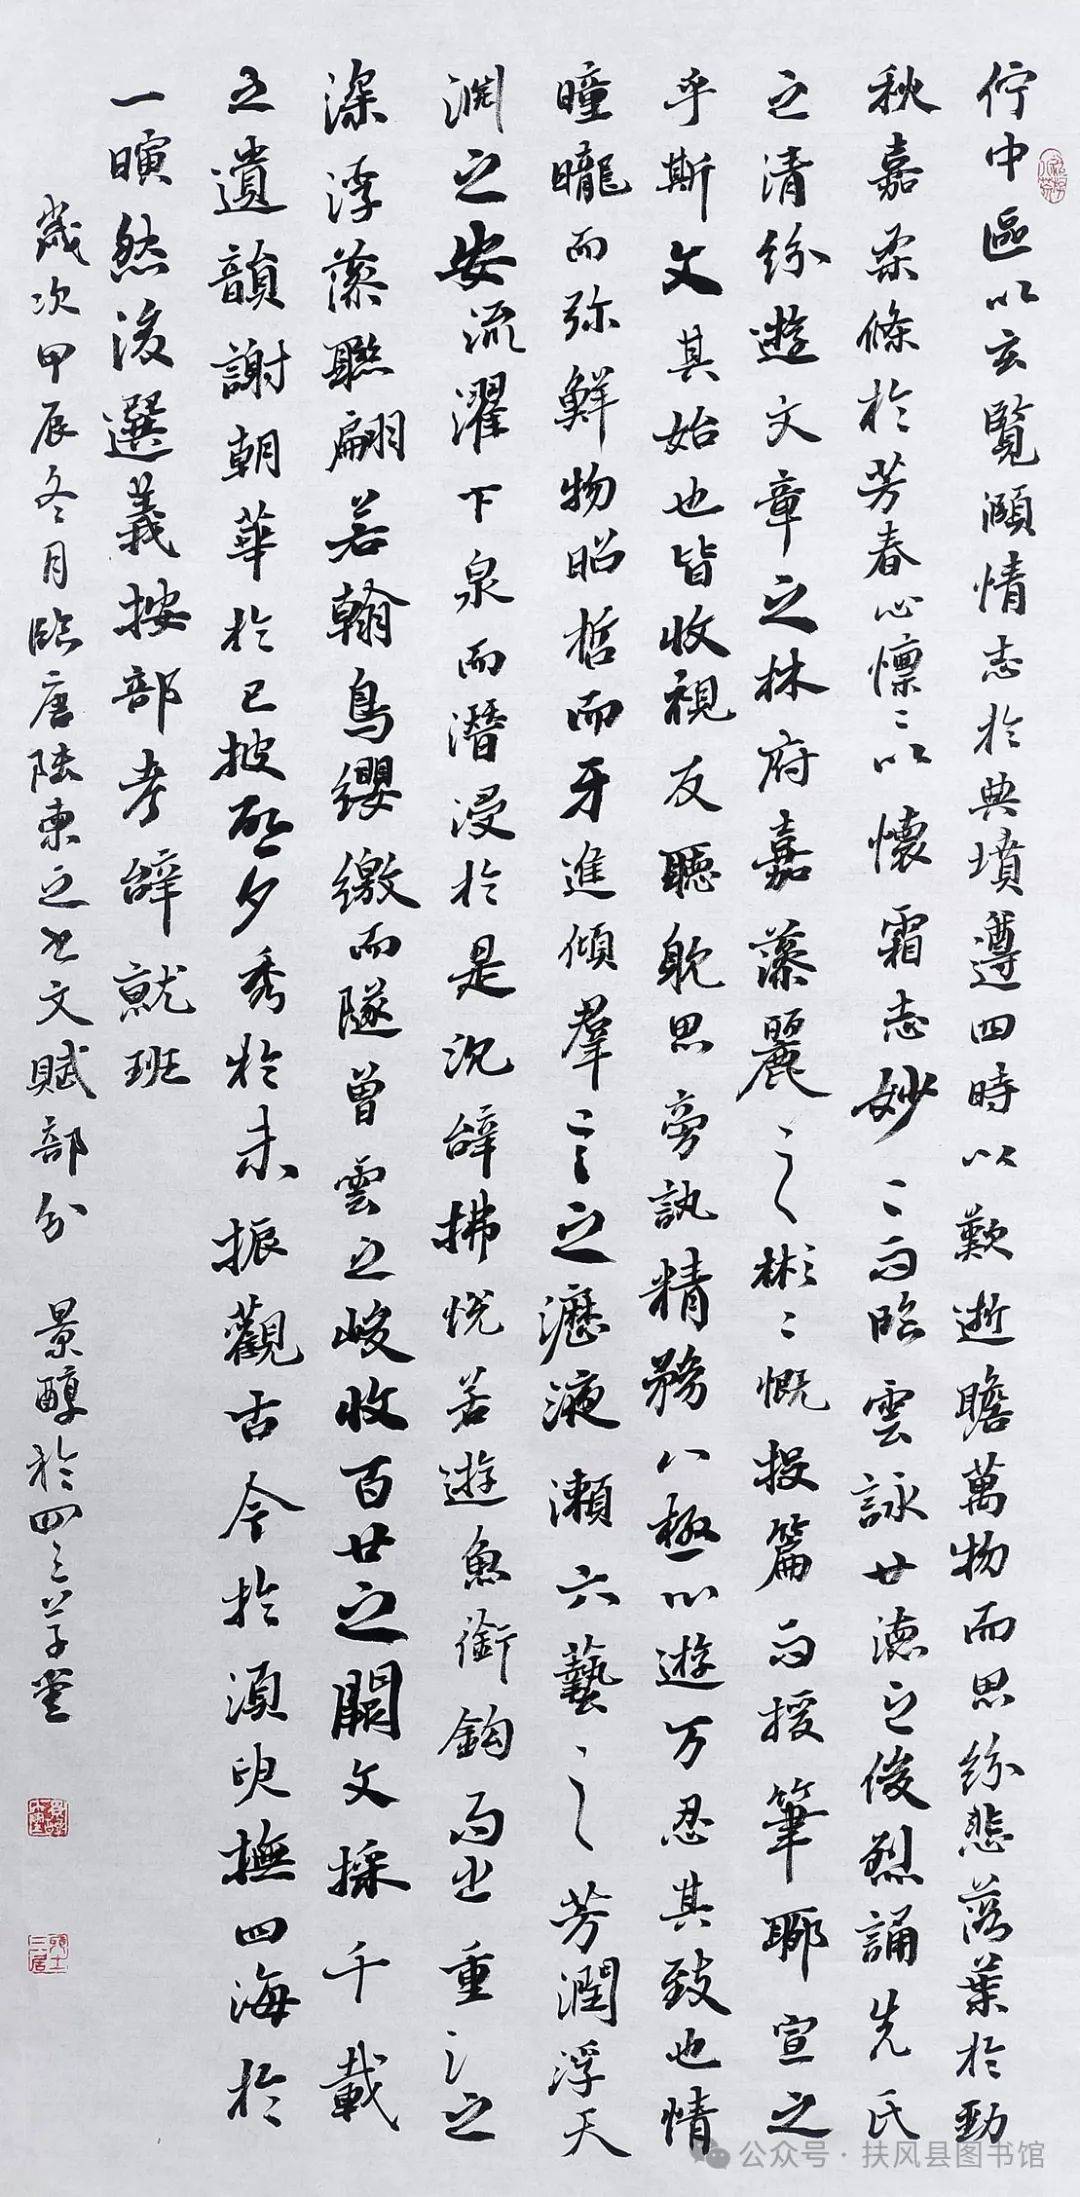 佇中區以玄覽頤情志於典墳遵四時以歎逝瞻萬物而思紛悲落葉於勁
秋嘉柔條於芳春心懍〻以懷霜志妙〻而臨雲詠廿德之俊烈誦先氏
之清紛遊文章之林府嘉藻麗〻之彬〻慨投篇而援筆聊宣之
乎斯文其始也皆收視反聽耽思旁訊精務八極以遊万忍其致也情
曈曨而弥鮮物昭晢而牙進傾羣〻言之瀝液瀨六藝〻之芳潤浮天
淵之安流濯下泉而潛浸於是沉辭拂悅若遊魚銜鈎而出重〻之
深浮藻聯翩若翰鳥纓繳而隧曾雲之峻收百廿之闕文採千載
之遺韻謝朝華於已披啟夕秀於未振觀古今於須臾撫四海於
一瞚然後選義按部考辭就班
歲次甲辰冬月臨唐陸柬之書文賦部分 景醇於四之草堂
公众号·扶风县图书馆